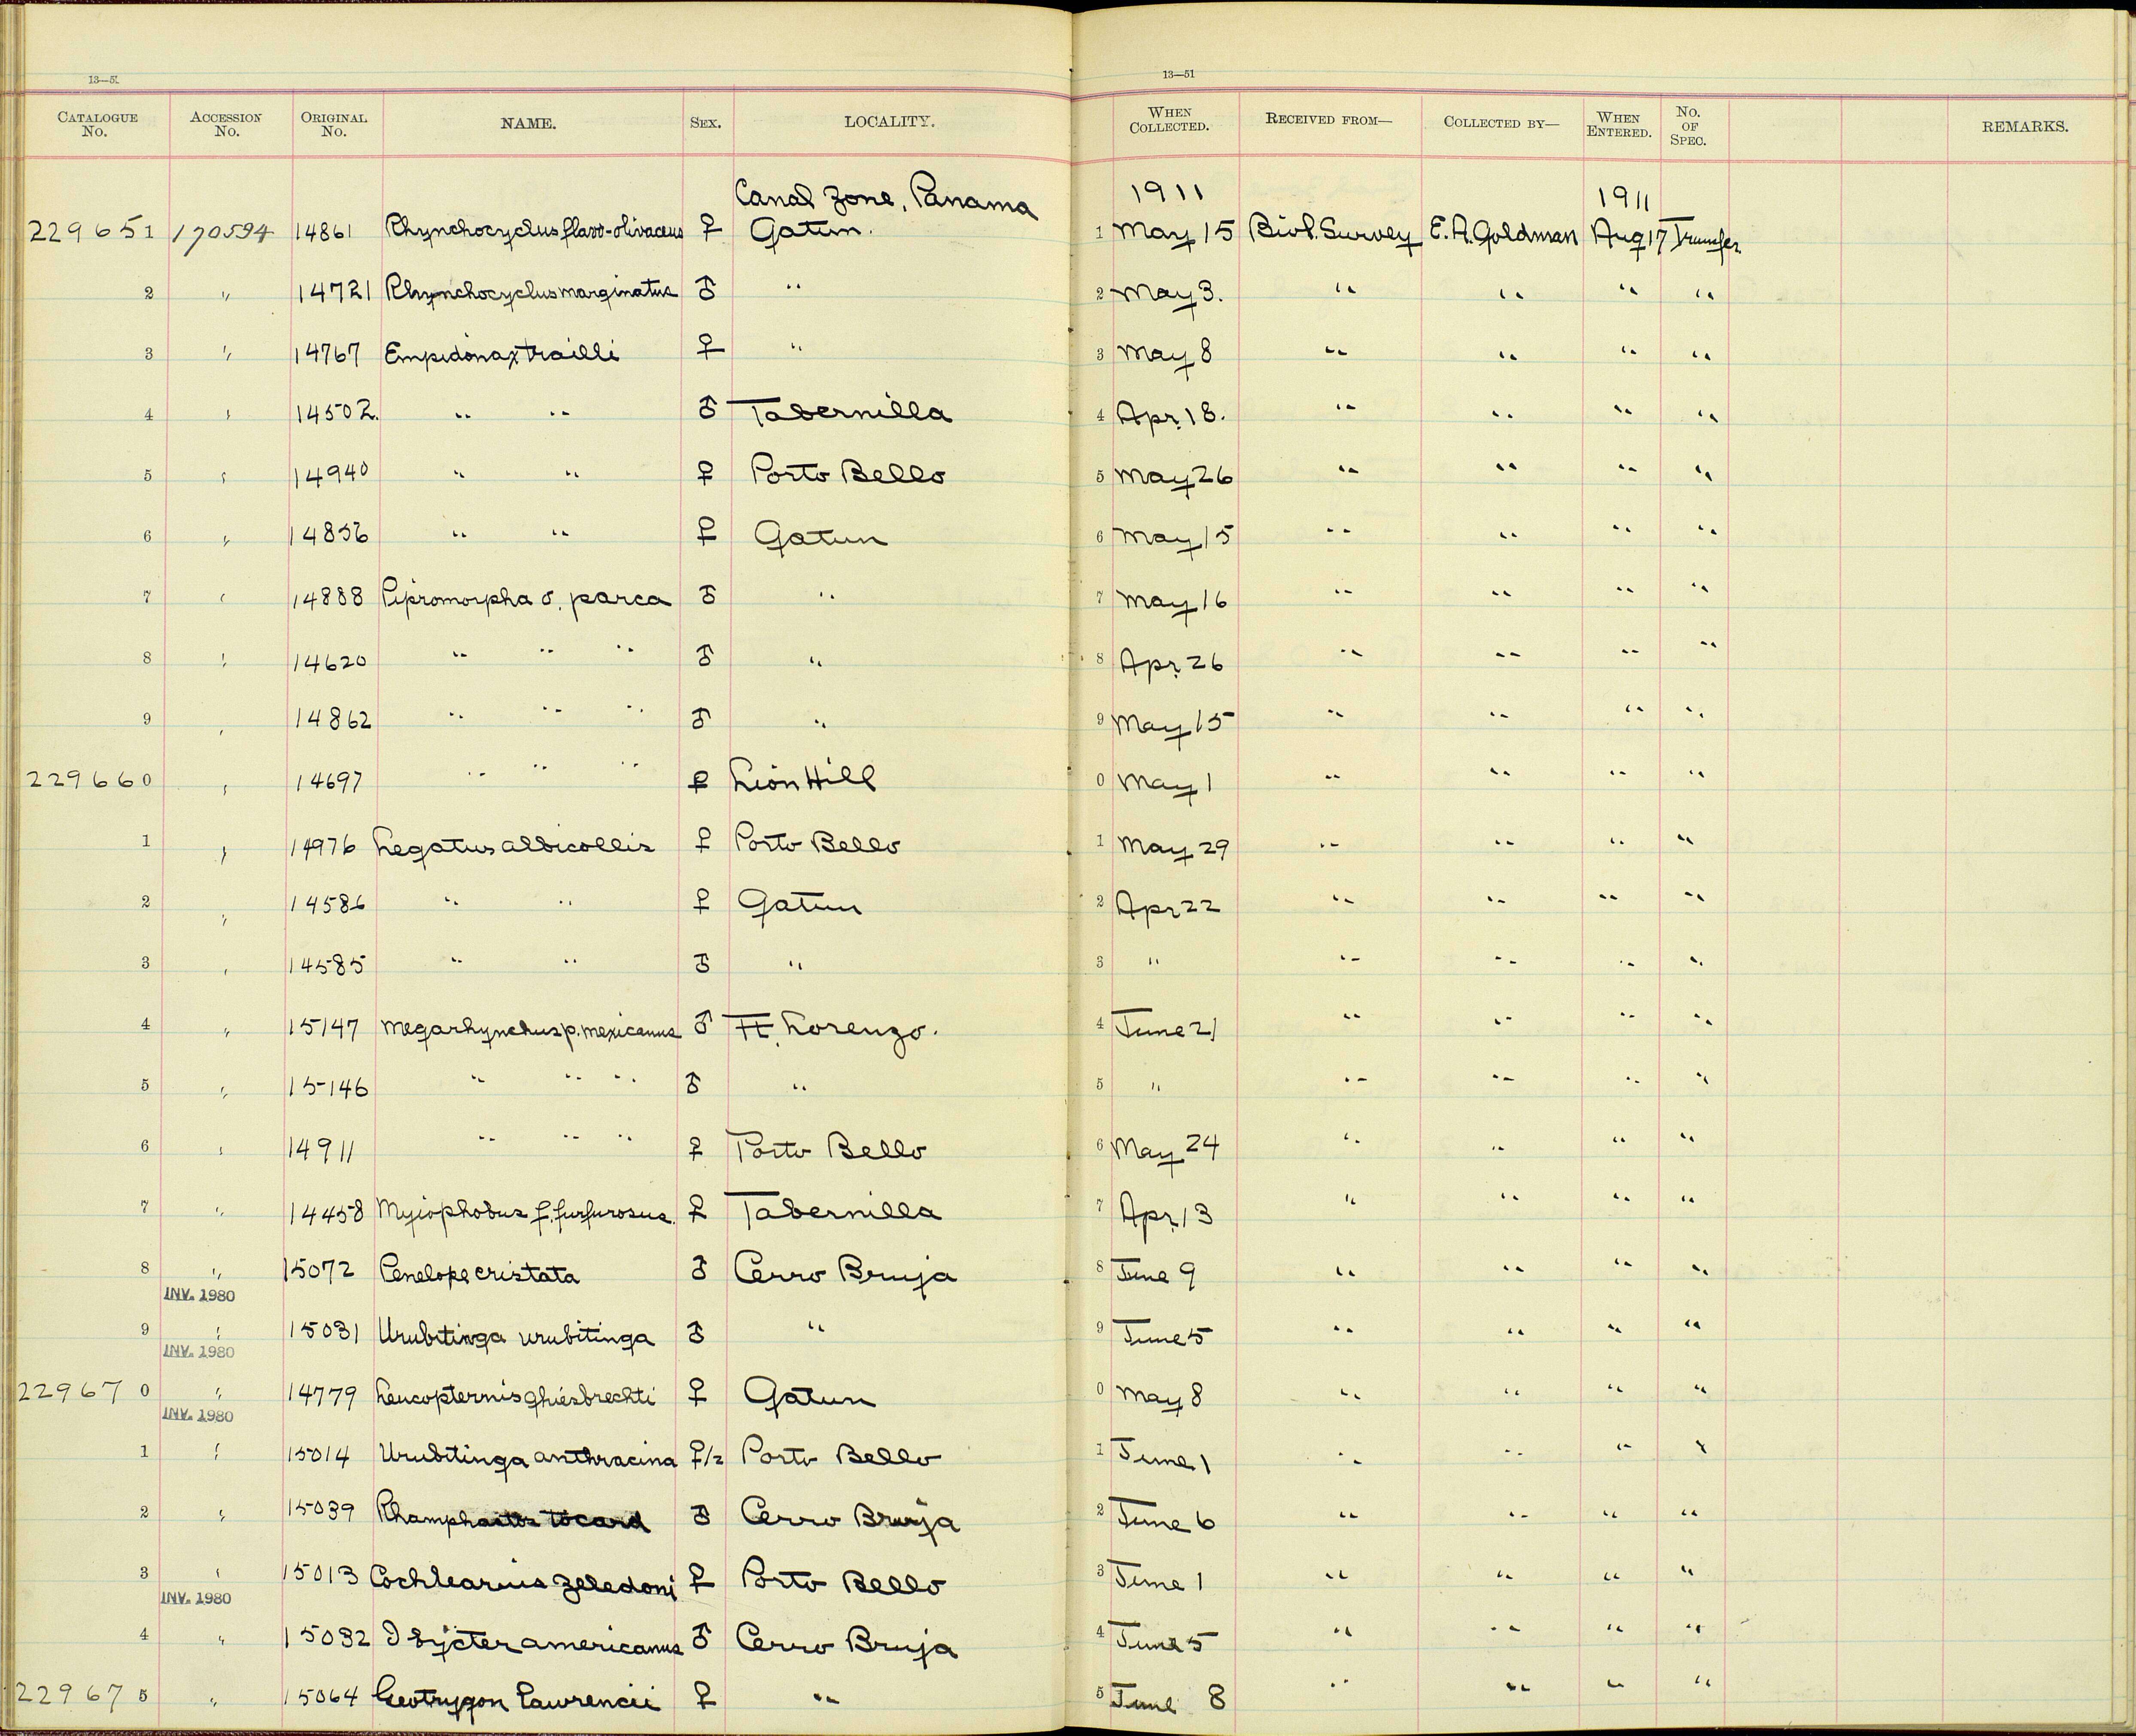 13—51
13—51
CATALOGUE No. ACCESSION No. ORIGINAL No. NAME. SEX. LOCALITY. WHEN COLLECTED. RECEIVED FROM— COLLECTED BY— WHEN ENTERED. No. OF SPEC. REMARKS.
Canal Zone, Panama 1911 1911
229651 170594 14861 Rhynchocyclus flavo-olivaceus ♀ Gatun. 1 May 15 Biol. Survey E. A. Goldman Aug 17 Transfer
2 " 14721 Rhynchocyclus marginatus ♂ " 2 May 3. " " " "
3 " 14767 Empidonax trailli ♀ " 3 May 8 " " " "
4 " 14502. " " ♂ Tabernilla 4 Apr. 18. " " " "
5 " 14940 " " ♀ Porto Bello 5 May 26 " " " "
6 " 14856 " " ♀ Gatun 6 May 15 " " " "
7 " 14888 Pipromorpha o. parca ♂ " 7 May 16 " " " "
8 " 14620 " " " ♂ " 8 Apr. 26 " " " "
9 " 14862 " " " ♂ " 9 May 15 " " " "
229660 " 14697 " " " ♀ Lion Hill 0 May 1 " " " "
1 " 14976 Legatus albicollis ♀ Porto Bello 1 May 29 " " " "
2 " 14586 " " ♀ Gatun 2 Apr 22 " " " "
3 " 14585 " " ♂ " 3 " " " " "
4 " 15147 Megarhynchus p. mexicanus ♂ Ft. Lorenzo. 4 June 21 " " " "
5 " 15146 " " " ♂ " 5 " " " " "
6 " 14911 " " " ♀ Porto Bello 6 May 24 " " " "
7 " 14458 Myiophobus f. furfurosus. ♀ Tabernilla 7 Apr. 13 " " " "
8 " 15072 Penelope cristata ♂ Cerro Bruja 8 June 9 " " " "
INV. 1980
9 " 15031 Urubitinga urubitinga ♂ " 9 June 5 " " " "
INV. 1980
229670 " 14779 Leucopternis ghiesbrechti ♀ Gatun 0 May 8 " " " "
INV. 1980
1 " 15014 Urubitinga anthracina ♀/2 Porto Bello 1 June 1 " " " "
2 " 15039 tocard ♂ Cerro Bruja 2 June 6 " " " "
3 " 15013 Cochlearius zeledoni ♀ Porto Bello 3 June 1 " " " "
INV. 1980
4 " 15032 Ibycter americanus ♂ Cerro Bruja 4 June 5 " " " "
229675 " 15064 Geotrygon lawrencii ♀ " 5 June 8 " " " "